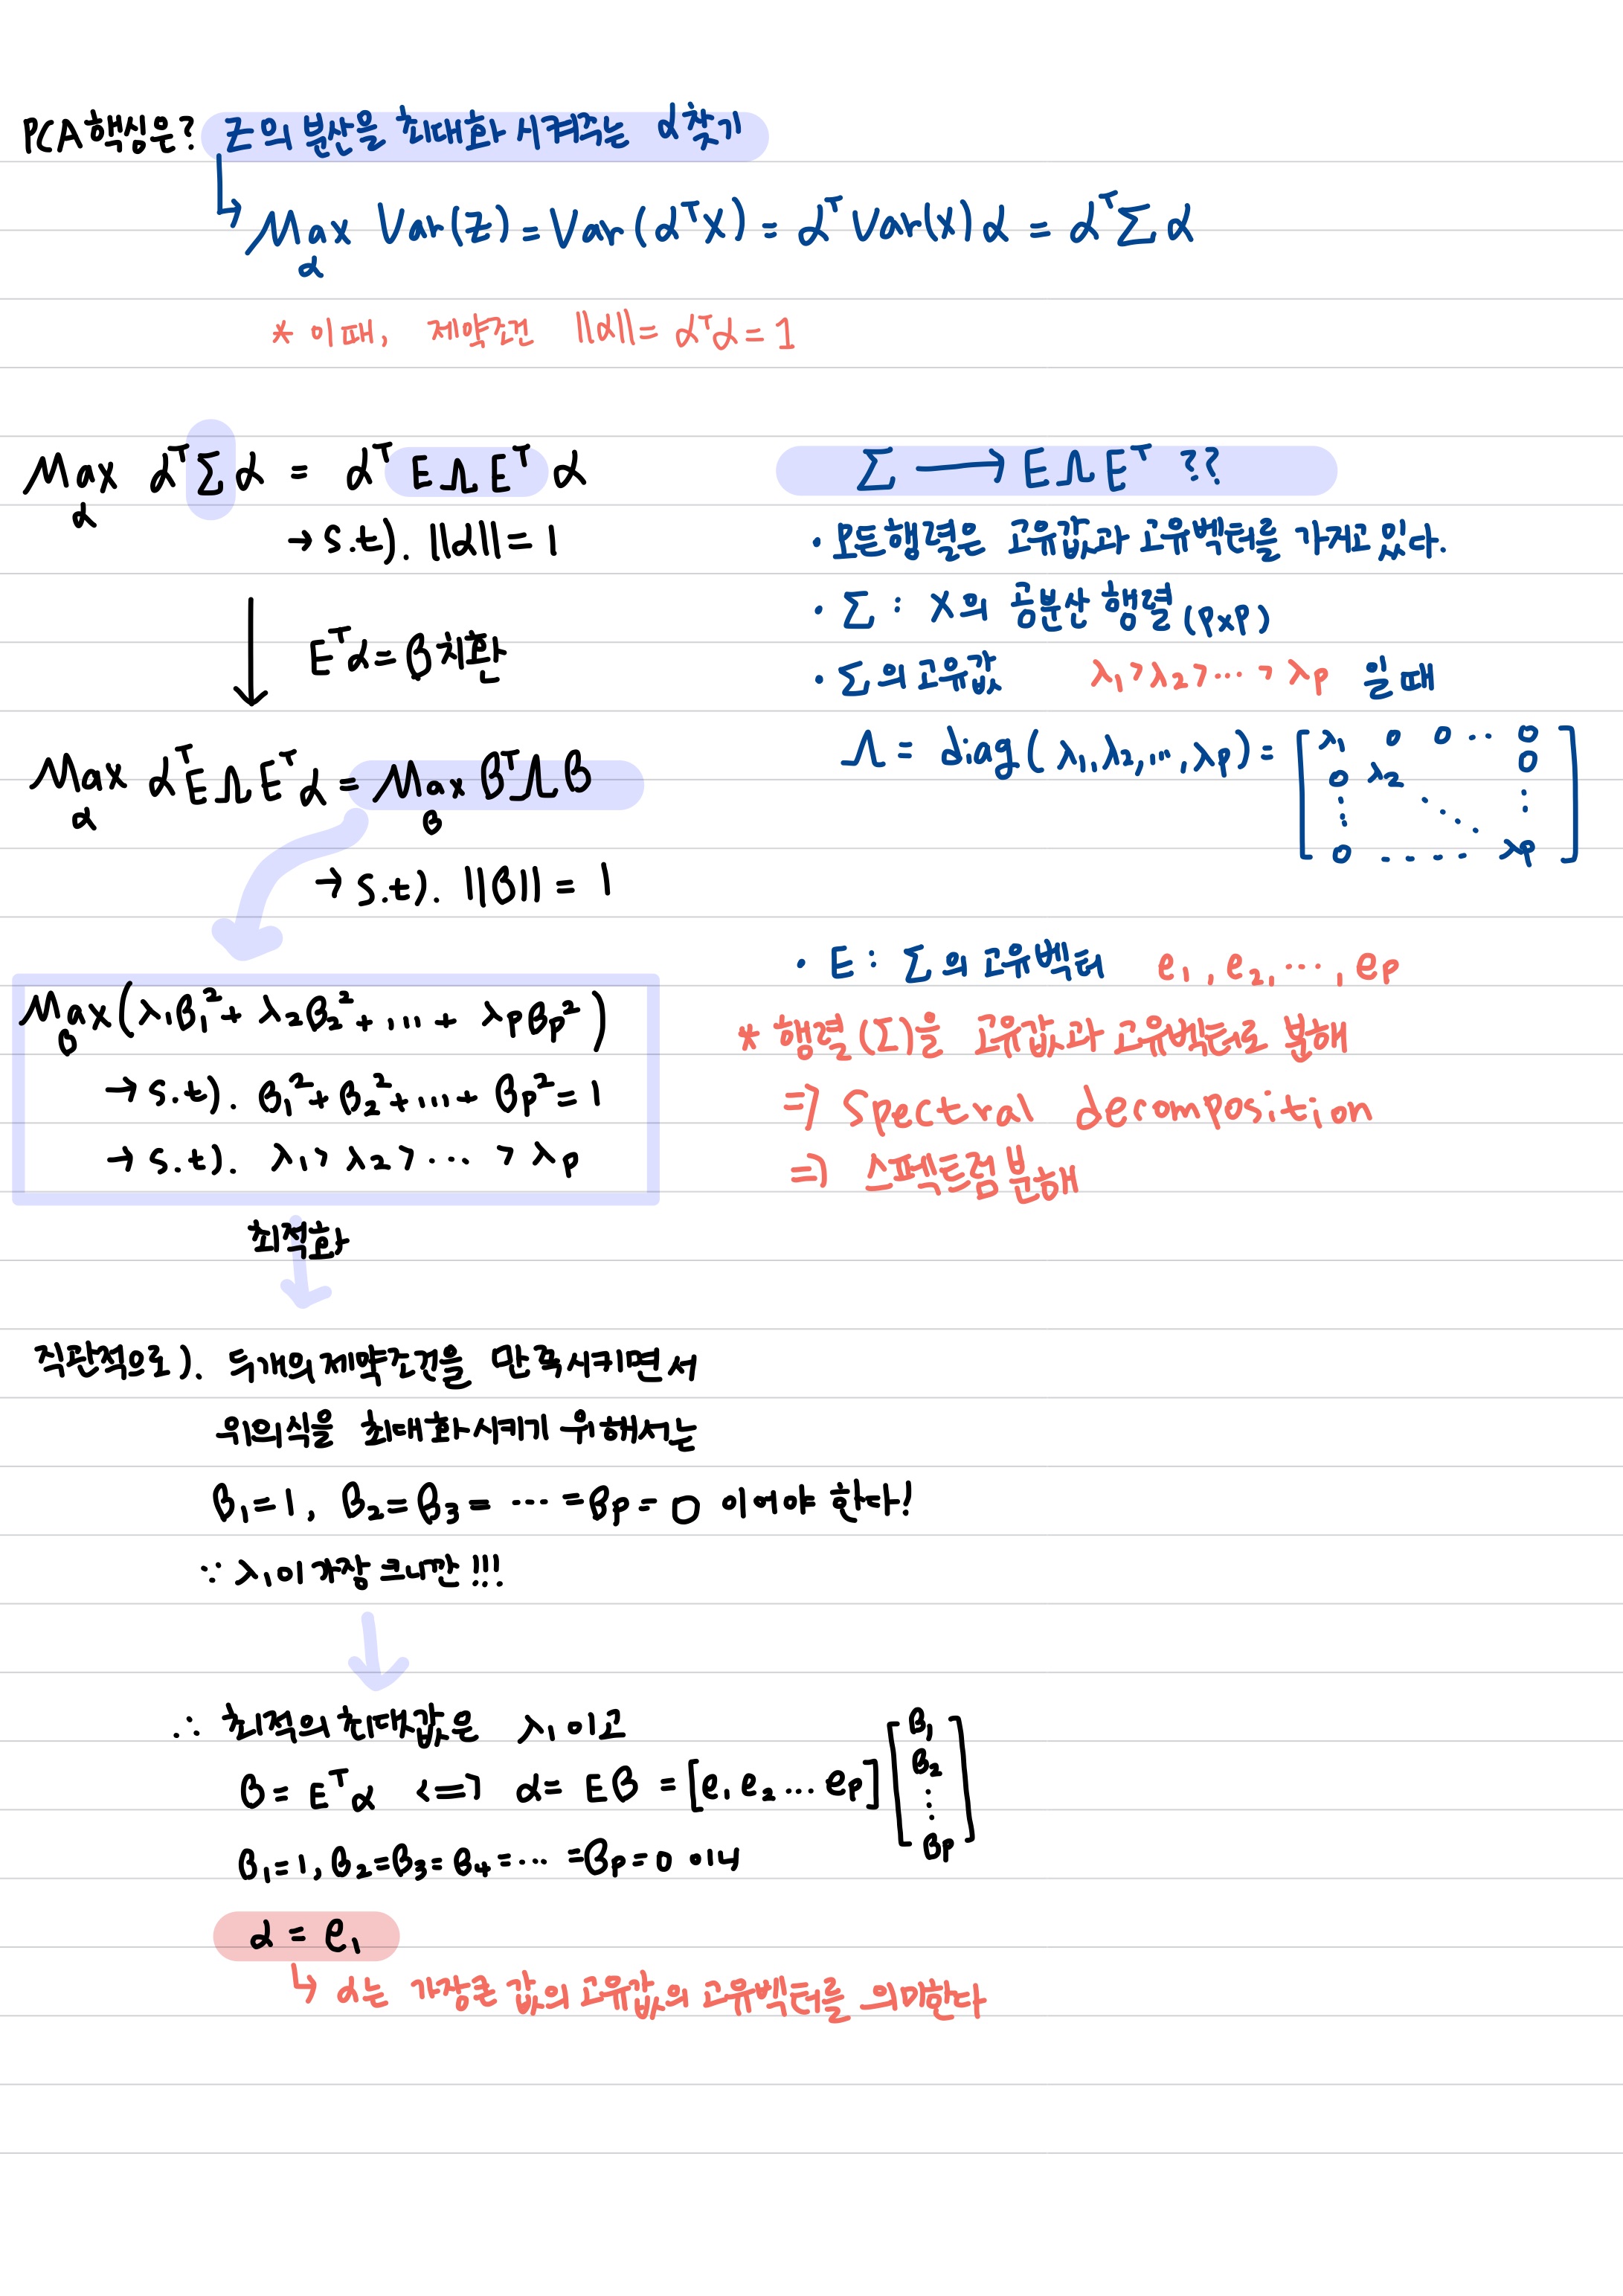 PCA핵심은? Z의 분산을 최대화 시켜주는 α찾기
Max Var(Z) = Var(αᵀX) = αᵀVar(X)α = αᵀΣα
α
* 이때, 제약조건 ||α|| = αᵀα = 1
Max αᵀΣα = αᵀEΛEᵀα
α
→ s.t). ||α|| = 1
Eᵀα = β 치환
Max αᵀEΛEᵀα = Max βᵀΛβ
α β
→ s.t). ||β|| = 1
Max(λ₁β₁² + λ₂β₂² + ... + λpβp²)
β
→ s.t). β₁² + β₂² + ... + βp² = 1
→ s.t). λ₁ > λ₂ > ... > λp
최적화
Σ → EΛEᵀ ??
· 모든행렬은 고유값과 고유벡터를 가지고 있다.
· Σ : X의 공분산 행렬(p×p)
· Σ의 고유값 λ₁>λ₂>...>λp 일 때
Λ = diag(λ₁, λ₂, ..., λp) = [λ₁ 0 0 .. 0
0 λ₂ 0
⋮ ⋱ ⋮
0 ..... λp]
· E : Σ의 고유벡터 e₁, e₂, ..., ep
* 행렬(Σ)을 고유값과 고유벡터로 분해
⇒ Spectral decomposition
⇒ 스펙트럼 분해
직관적으로). 두개의 제약조건을 만족시키면서
위의식을 최대화시키기 위해서는
β₁=1, β₂=β₃= ... =βp=0 이어야 한다!
∵ λ₁이 가장 크니깐!!!
∴ 최적의 최대값은 λ₁이고
β = Eᵀα <=> α = Eβ = [e₁ e₂ ... ep] [β₁
β₂
⋮
βp]
β₁=1, β₂=β₃=β₄=... =βp=0 이니
α = e₁
↳ α는 가장큰 값의 고유값의 고유벡터를 의미한다